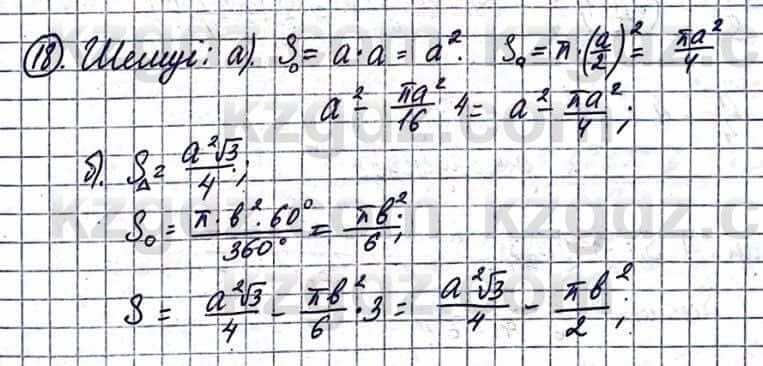 18). Шешуі: а). S□ = a·a = a². Sₒ = π·(a/2)² = πa²/4
a² - πa²/16 · 4 = a² - πa²/4;
б). S△ = a²√3/4;
Sₒ = π·b²·60°/360° = πb²/6;
S = a²√3/4 - πb²/6 · 3 = a²√3/4 - πb²/2;